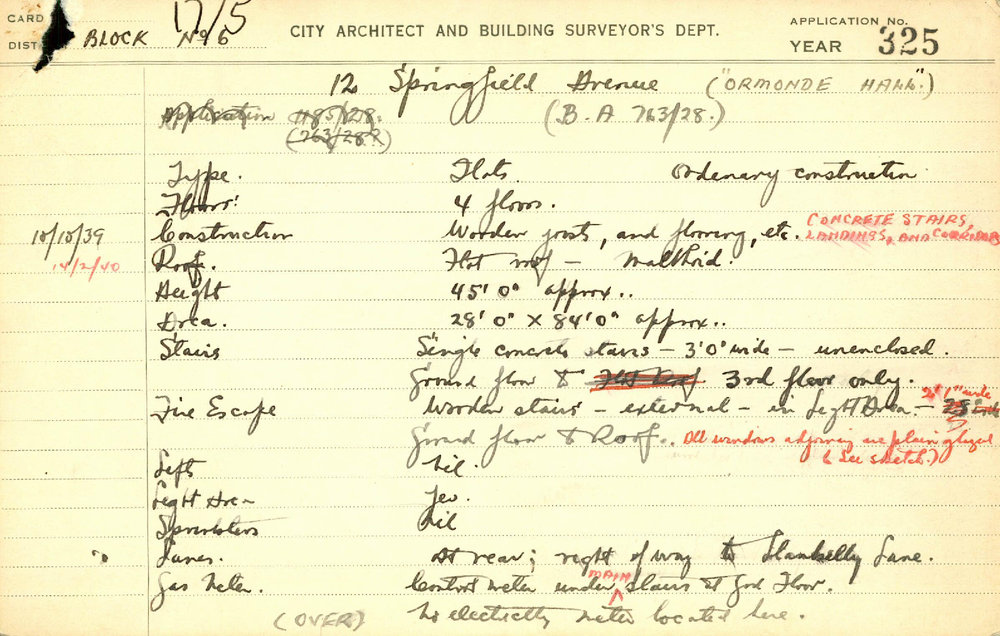 CARD 17/5 CITY ARCHITECT AND BUILDING SURVEYOR'S DEPT. APPLICATION No.
DIST BLOCK No 6 YEAR 325
12 Springfield Avenue ("ORMONDE HALL")
Application 1185/28. (B.A 763/28.)
(763/28?)
Type. Flats. Ordenary construction
Floors: 4 floors.
10/10/39 Construction Wooden joists, and flooring, etc. CONCRETE STAIRS, LANDINGS, AND CORRIDORS
14/2/40 Roof. Flat roof - Malthoid.
Height 45' 0" approx..
Area. 28' 0" X 84' 0" approx..
Stairs Single concrete stairs - 3' 0" wide - unenclosed.
Ground floor to Flat Roof 3rd floor only.
Fire Escape Wooden stairs - external - in Light Area - 2' 1" wide
Ground floor to Roof.. All windows adjoining are plain glazed
(See sketch.)
Lifts Nil.
Light Area Yes.
Sprinklers Nil
Lanes. At rear; right of way to Llankelly Lane.
Gas Meter. Control Meter under MAIN Stairs at Grd Floor.
(OVER) No electricity meter located here.